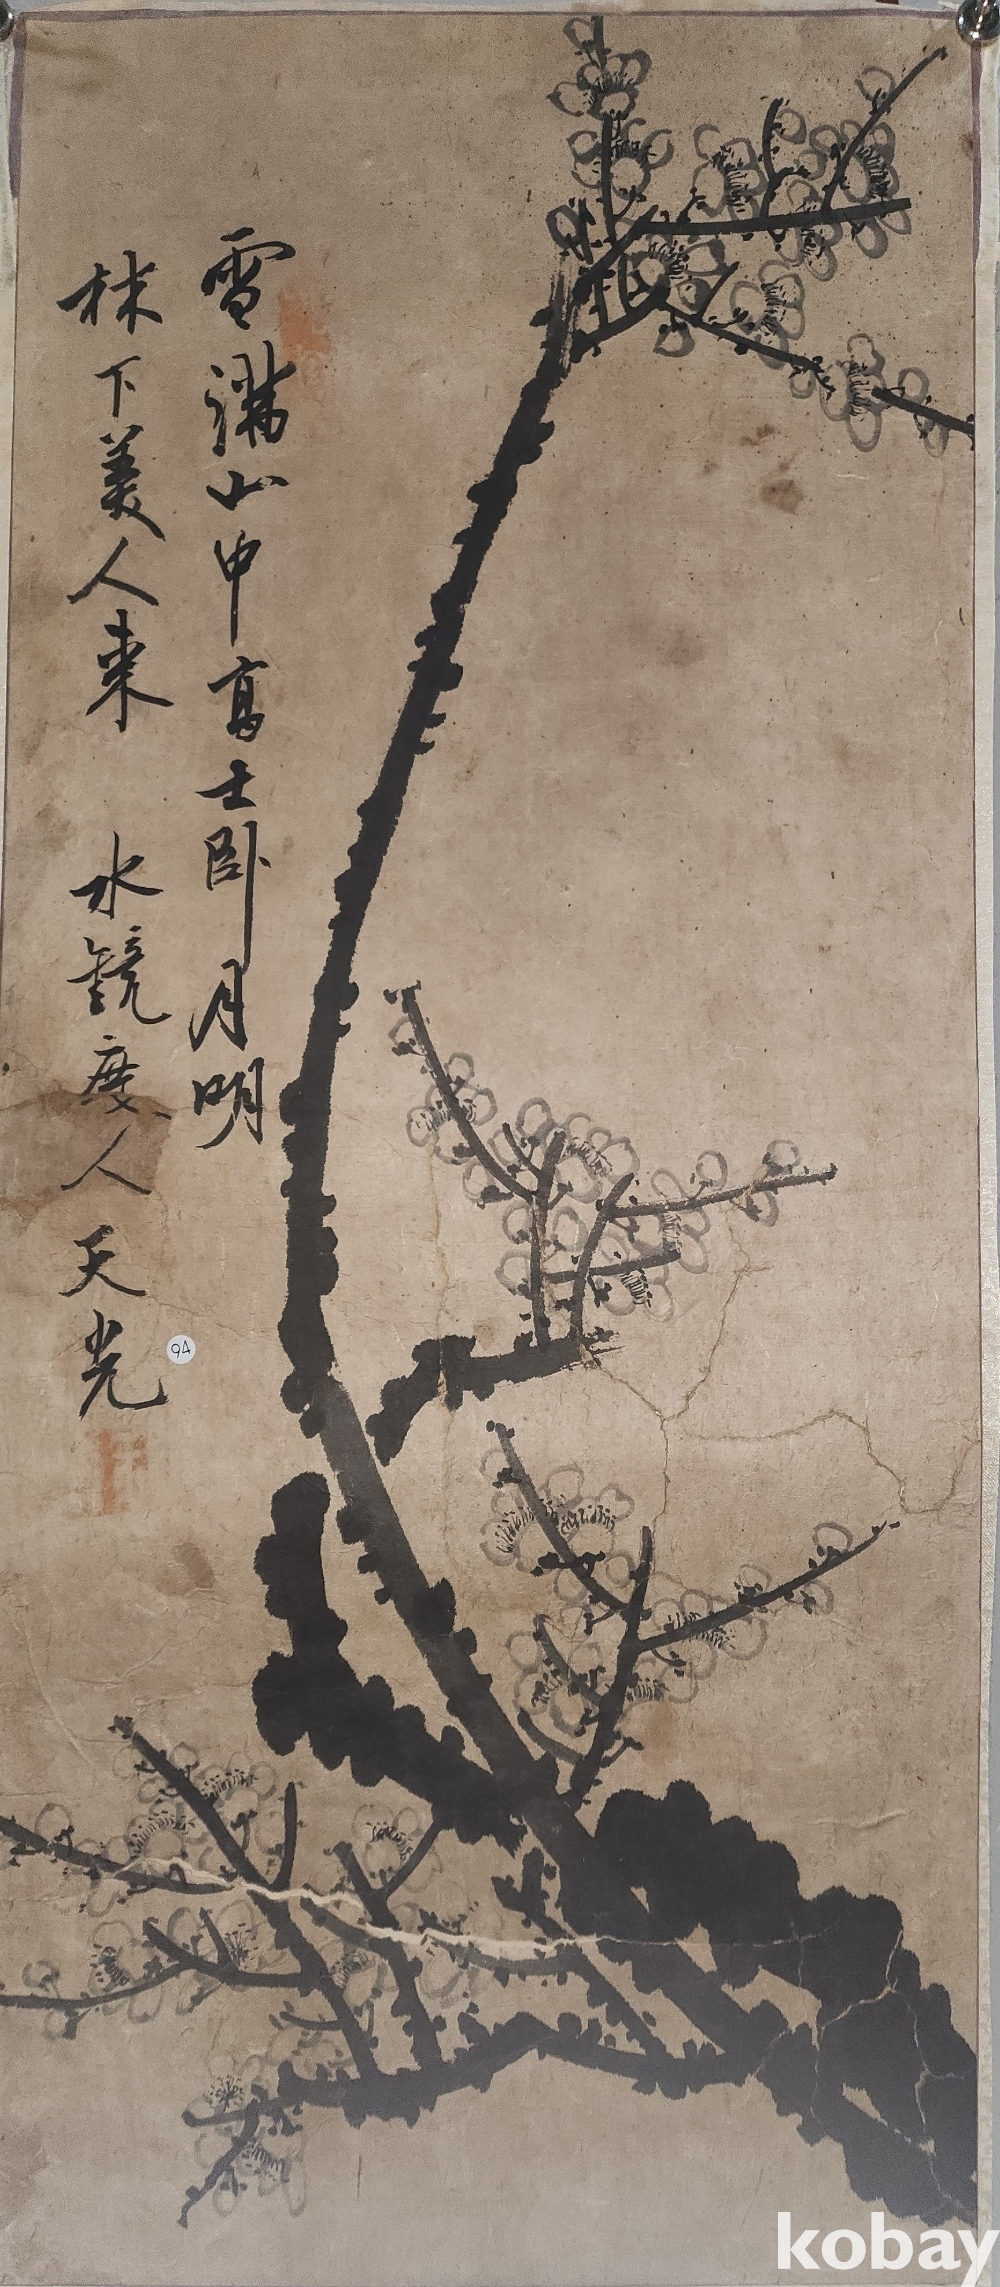 雪滿山中高士卧月明
林下美人來 水鏡度人 天光
94
kobay